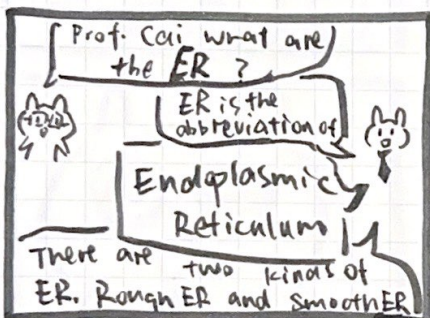 Prof. Cai what are
the ER ?
ER is the
abbreviation of
Endoplasmic
Reticulum
There are two kinds of
ER. Rough ER and smooth ER